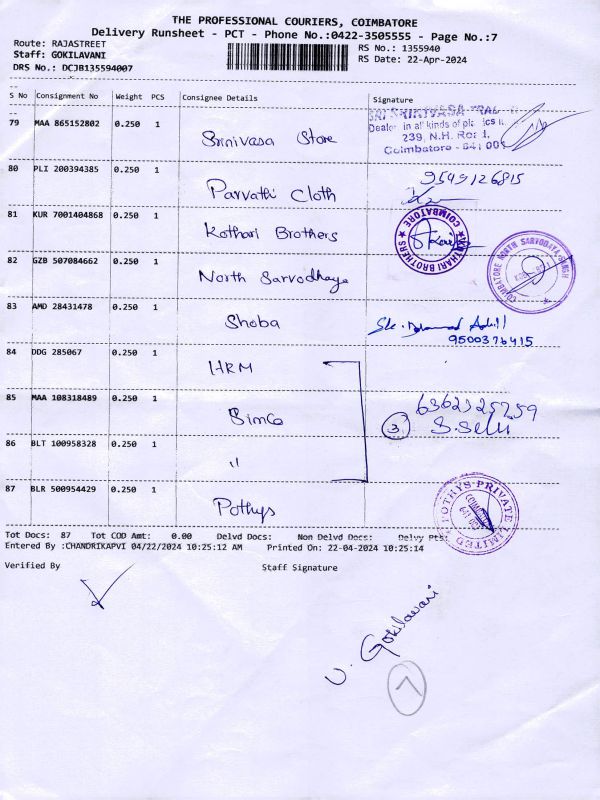 THE PROFESSIONAL COURIERS, COIMBATORE
Delivery Runsheet - PCT - Phone No.:0422-3505555 - Page No.:7
Route: RAJASTREET
Staff: GOKILAVANI
DRS No.: DCJB135594007
RS No.: 1355940
RS Date: 22-Apr-2024
S No Consignment No Weight PCS Consignee Details Signature
79 MAA 865152802 0.250 1 Srinivasa Store
Dealer in all kinds of
239, N.H. Road,
Coimbatore - 641 001
80 PLI 200394385 0.250 1 Parvathi Cloth 9549126815
81 KUR 7001404868 0.250 1 Kothari Brothers
KOTHARI BROTHERS ★ COIMBATORE ★
82 GZB 507084662 0.250 1 North Sarvodhaya
COIMBATORE NORTH SARVODAYA SANGH
83 AMD 28431478 0.250 1 Shoba
9500376415
84 DDG 285067 0.250 1 HRM
85 MAA 108318489 0.250 1 Simco 3 6362325259
S.Selvi
86 BLT 100958328 0.250 1 "
87 BLR 500954429 0.250 1 Pothys
POTHYS PRIVATE LIMITED
Tot Docs: 87 Tot COD Amt: 0.00 Delvd Docs: Non Delvd Docs: Delvy Pts:
Entered By :CHANDRIKAPVI 04/22/2024 10:25:12 AM Printed On: 22-04-2024 10:25:14
Verified By Staff Signature
V. Gokilavani
7